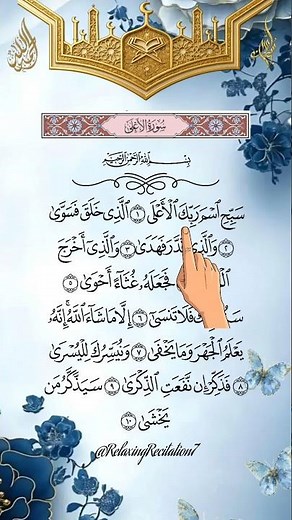 سُورَةُ الأَعْلَىٰ
بِسْمِ اللَّهِ الرَّحْمَٰنِ الرَّحِيمِ
سَبِّحِ اسْمَ رَبِّكَ الْأَعْلَى ١ الَّذِي خَلَقَ فَسَوَّىٰ
٢ وَالَّذِي قَدَّرَ فَهَدَىٰ ٣ وَالَّذِي أَخْرَجَ
فَجَعَلَهُ غُثَاءً أَحْوَىٰ ٥
فَلَا تَنسَىٰ ٦ إِلَّا مَا شَاءَ اللَّهُ إِنَّهُ
يَعْلَمُ الْجَهْرَ وَمَا يَخْفَىٰ ٧ وَنُيَسِّرُكَ لِلْيُسْرَىٰ
٨ فَذَكِّرْ إِن نَّفَعَتِ الذِّكْرَىٰ ٩ سَيَذَّكَّرُ مَن
يَخْشَىٰ ١٠
@RelaxingRecitation7